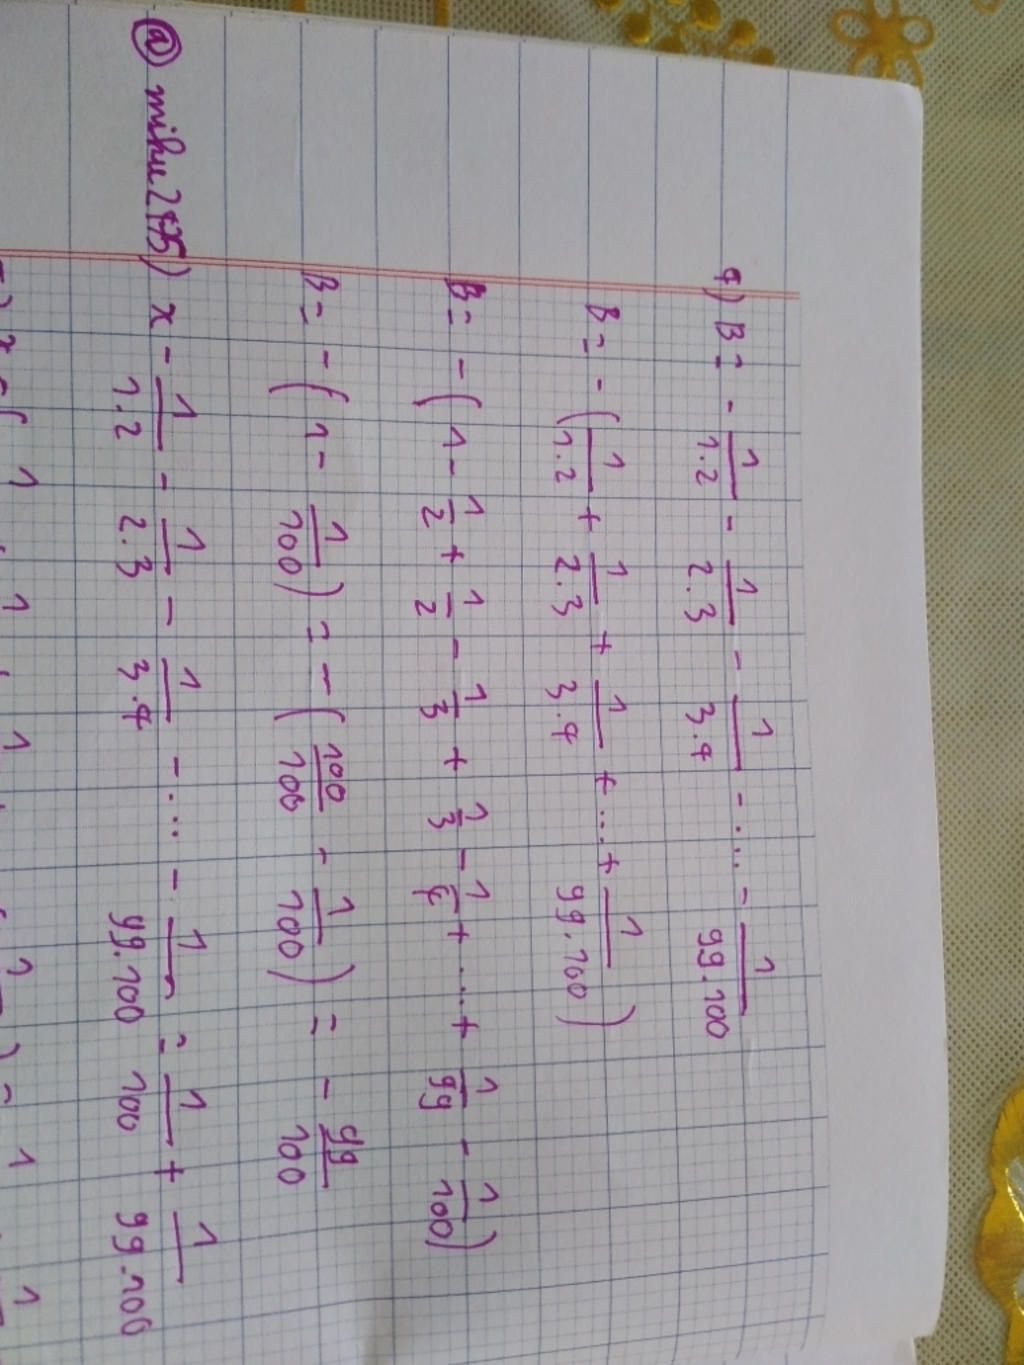 4) B = - 1/1.2 - 1/2.3 - 1/3.4 - ... - 1/99.100
B = - ( 1/1.2 + 1/2.3 + 1/3.4 + ... + 1/99.100 )
B = - ( 1 - 1/2 + 1/2 - 1/3 + 1/3 - 1/4 + ... + 1/99 - 1/100 )
B = - ( 1 - 1/100 ) = - ( 100/100 - 1/100 ) = - 99/100
x - 1/1.2 - 1/2.3 - 1/3.4 - ... - 1/99.100 = 1/100 + 1/99.100